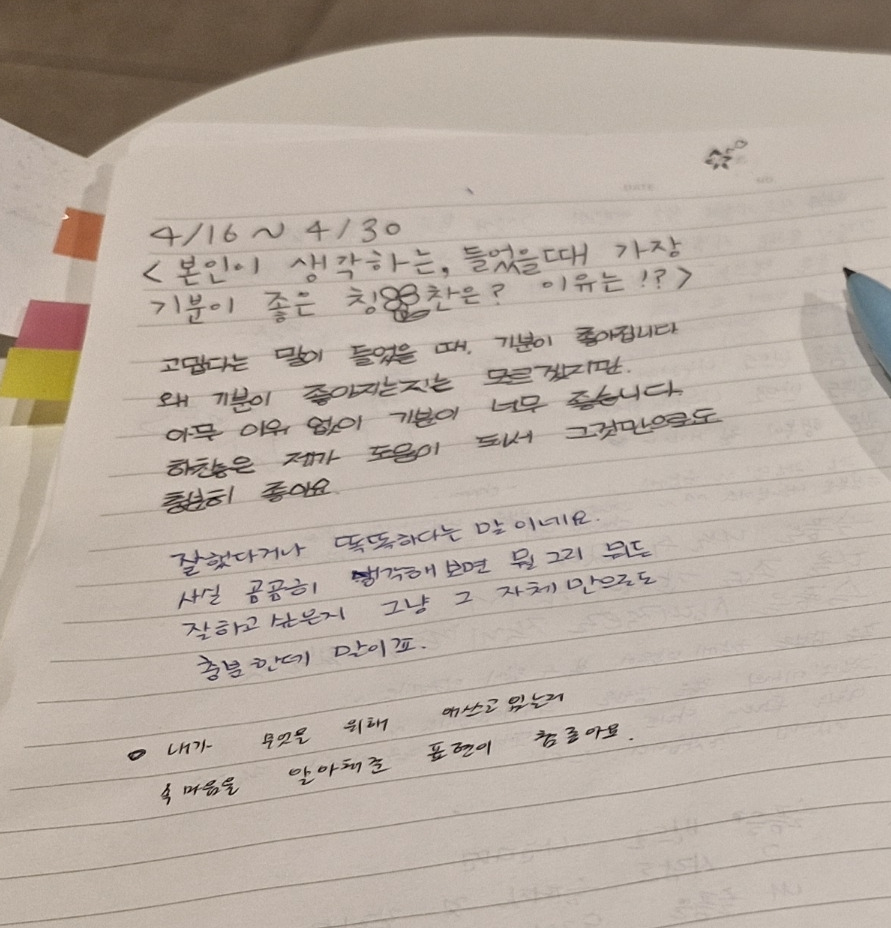 4/16 ~ 4/30
<본인이 생각하는, 들었을때 가장
기분이 좋은 칭찬은? 이유는!?>
고맙다는 말이 들었을 때, 기분이 좋아집니다
왜 기분이 좋아지는지는 모르겠지만.
아무 이유 없이 기분이 너무 좋습니다.
하찮은 제가 도움이 되서 그것만으로도
충분히 좋아요.
잘했다거나 똑똑하다는 말이네요.
사실 곰곰히 생각해보면 뭘 그리 뭐든
잘하고 싶은지 그냥 그 자체만으로도
충분한데 말이죠.
내가 무엇을 위해 애쓰고 있는지
속마음을 알아채준 표현이 참 좋아요.